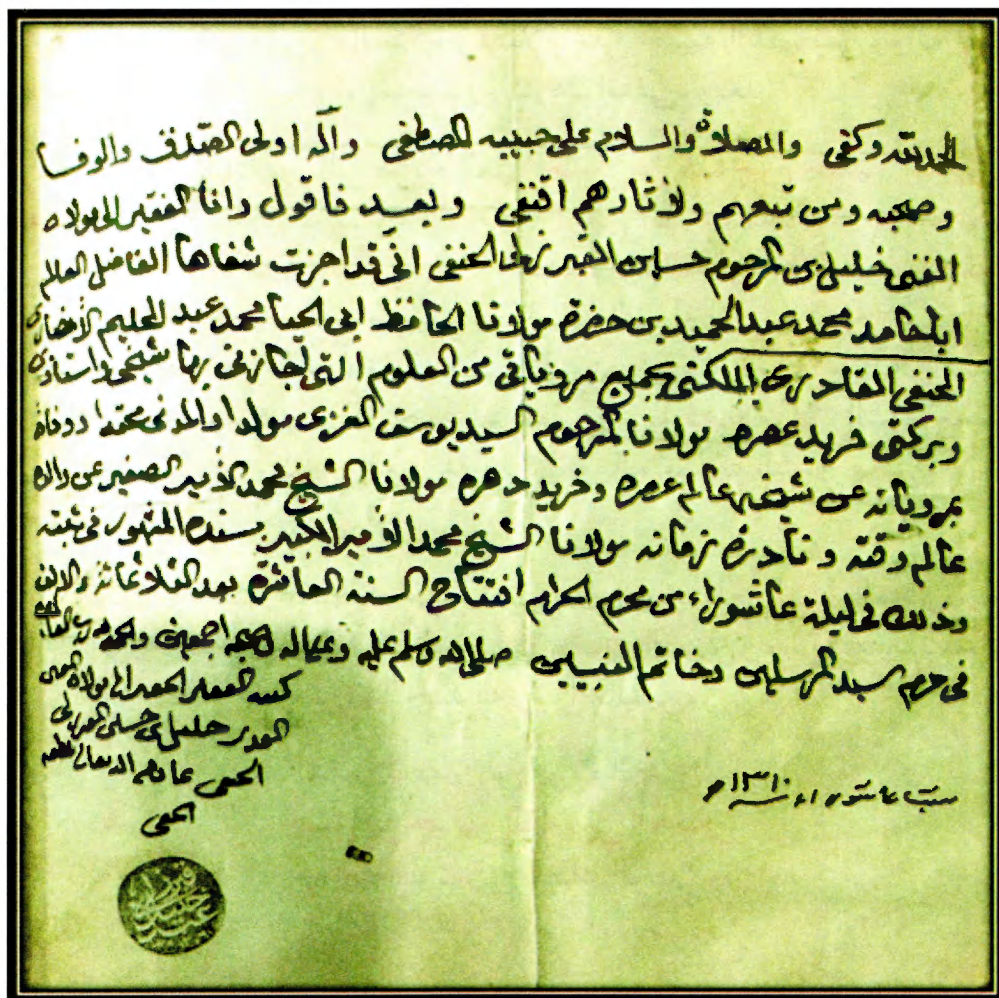 الحمد لله وكفى والصلاة والسلام على حبيبه المصطفى وآله اولى الصدق والوفا
وصحبه ومن تبعهم ولآثارهم اقتفى وبعد فاقول وانا الفقير الى مولاه
الغنى خليل بن المرحوم حسين الحنفى انى قد اجزت شفاها الفاضل العالم
ابا حامد محمد عبد الحميد بن حضرة مولانا الحافظ ابى الحيا محمد عبد الحليم الأنصارى
الحنفى القادرى بجميع مروياتى من العلوم التى اجازنى بها شيخى واستاذى
وبركتى فريد عصره مولانا المرحوم السيد يوسف الغزى مولدا والمدنى ووفاة
بمروياته عن شيخه عالم عصره وفريد دهره مولانا الشيخ محمد الأمير الصغير عن والده
عالم وقته ونادرة زمانه مولانا الشيخ محمد الأمير الكبير بسنده المشهور فى ثبته
وذلك فى ليلة عاشوراء من محرم الحرام افتتاح السنة العاشرة بعد الثلاثمائة والالف
فى حرم سيد المرسلين وخاتم النبيين صلى الله وسلم عليه وعلى اله وصحبه اجمعين والحمد لله رب العالمين
كتبه الفقير الحقير الى مولاه الغنى
القدير خليل بن حسين
الحنفى عاملهم الله تعالى بلطفه
الخفى
عاشوراء سنة ١٣١٠